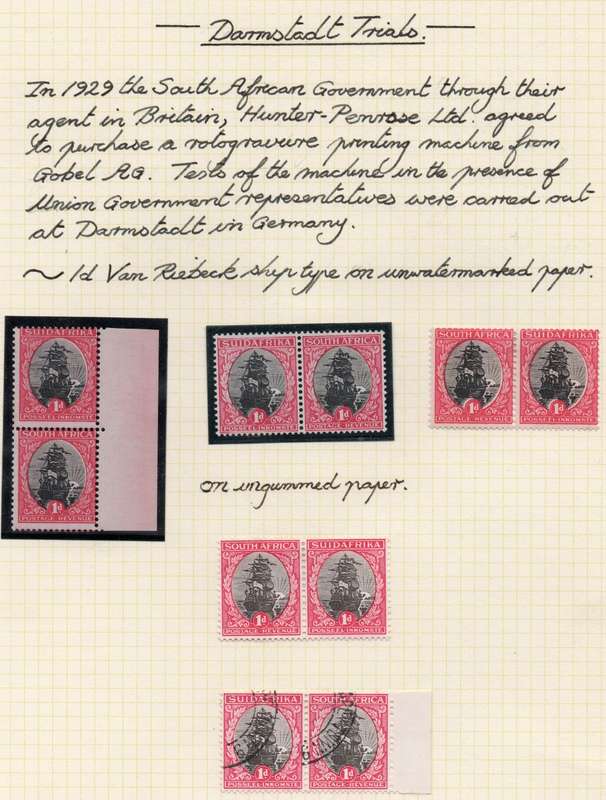 Darmstadt Trials.
In 1929 the South African Government through their
agent in Britain, Hunter-Penrose Ltd. agreed
to purchase a rotogravure printing machine from
Gobel AG. Tests of the machine in the presence of
Union Government representatives were carried out
at Darmstadt in Germany.
~ 1d Van Riebeck ship type on unwatermarked paper.
SUIDAFRIKA
1d
POSSEEL-INKOMSTE
SOUTH AFRICA
1d
POSTAGE REVENUE
SUIDAFRIKA SUIDAFRIKA
1d 1d
POSSEEL-INKOMSTE POSSEEL-INKOMSTE
SOUTH AFRICA SUIDAFRIKA
1d 1d
POSTAGE REVENUE POSTAGE REVENUE
on ungummed paper.
SOUTH AFRICA SUIDAFRIKA
1d 1d
POSTAGE REVENUE POSSEEL-INKOMSTE
SUIDAFRIKA SUIDAFRIKA
1d 1d
POSSEEL-INKOMSTE POSSEEL-INKOMSTE